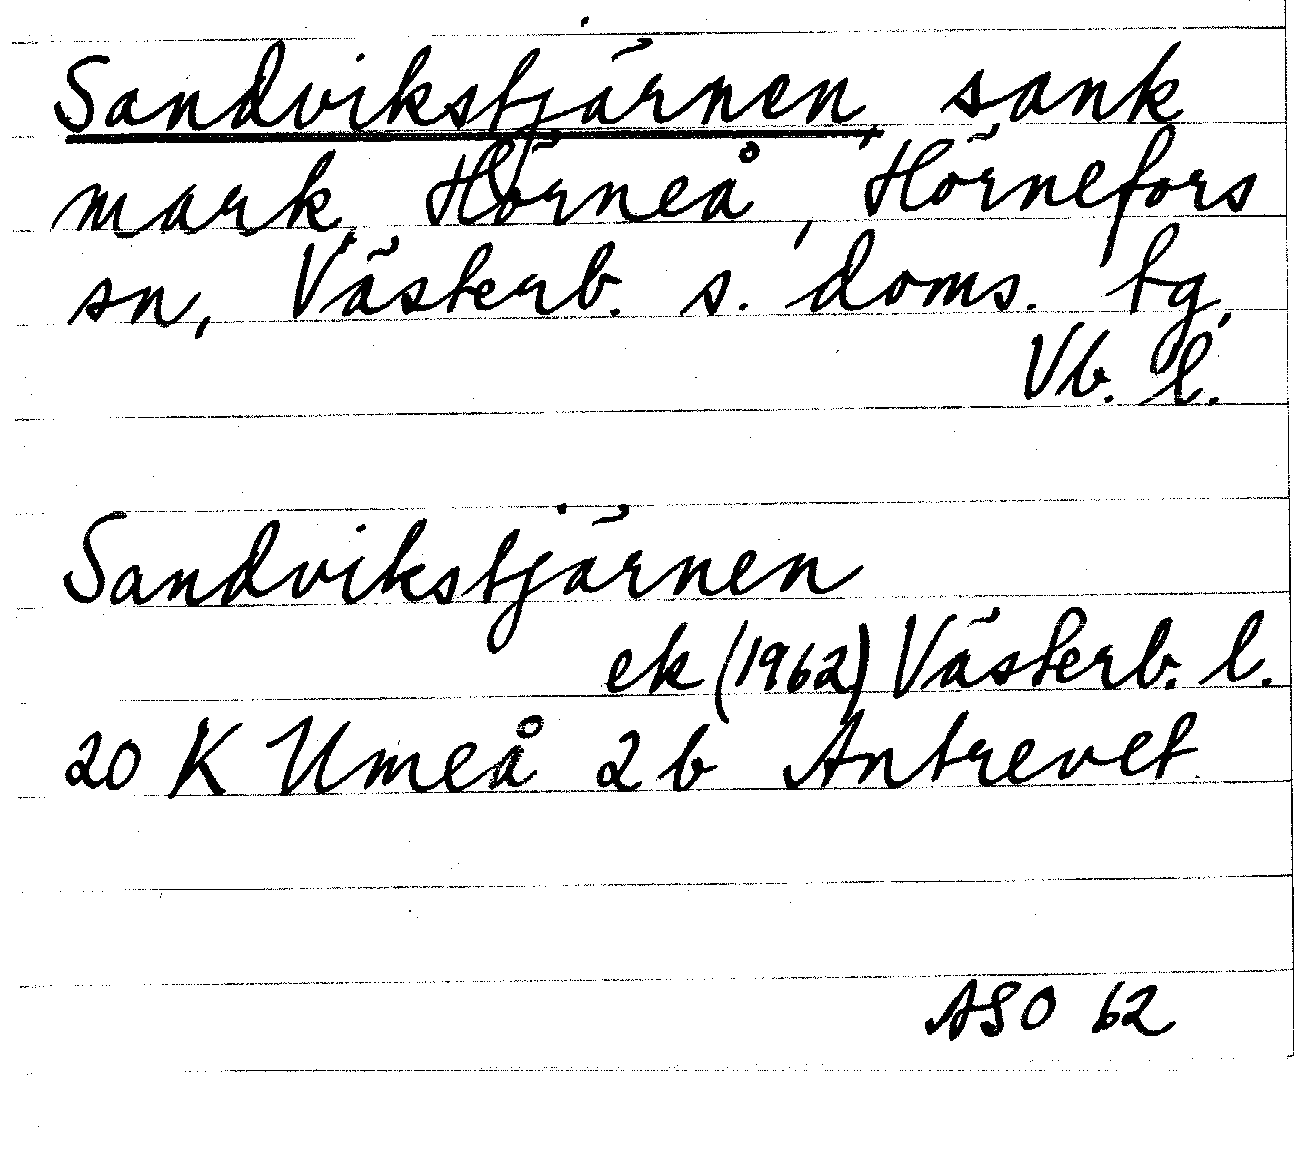 Sandvikstjärnen, sank
mark, Hörneå, Hörnefors
sn, Västerb. s. doms. tg,
Vb. l.
Sandvikstjärnen
ek (1962) Västerb. l.
20 K Umeå 2 b Antrevet
ASO 62